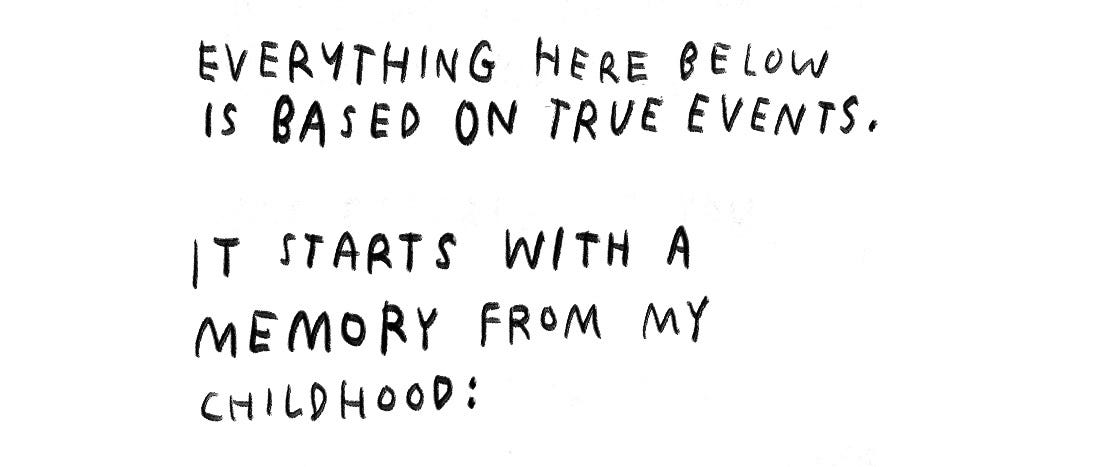 EVERYTHING HERE BELOW
IS BASED ON TRUE EVENTS.
IT STARTS WITH A
MEMORY FROM MY
CHILDHOOD: